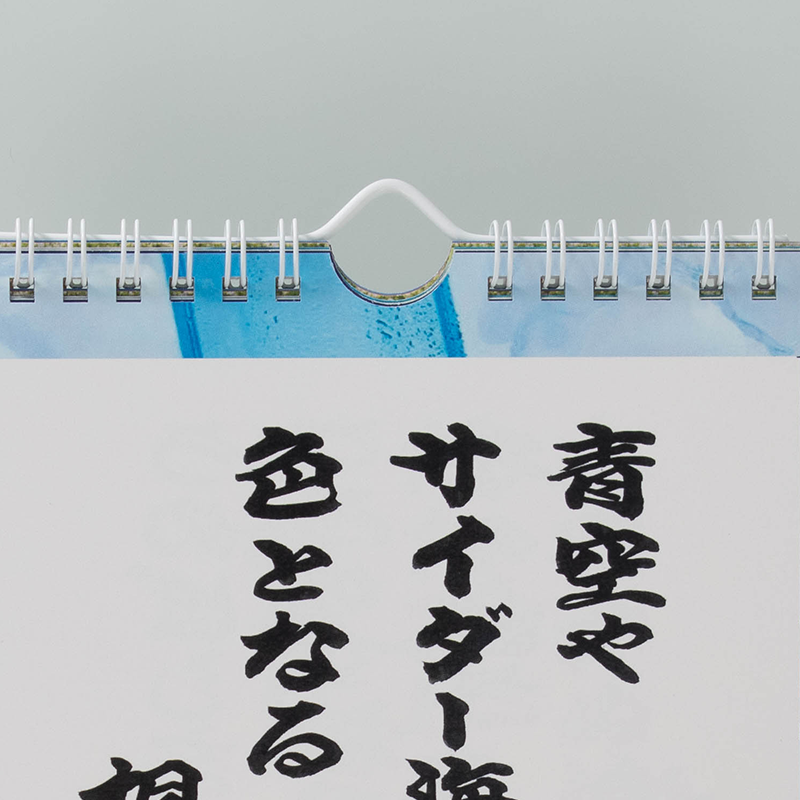 青空や
サイダー海
色となる